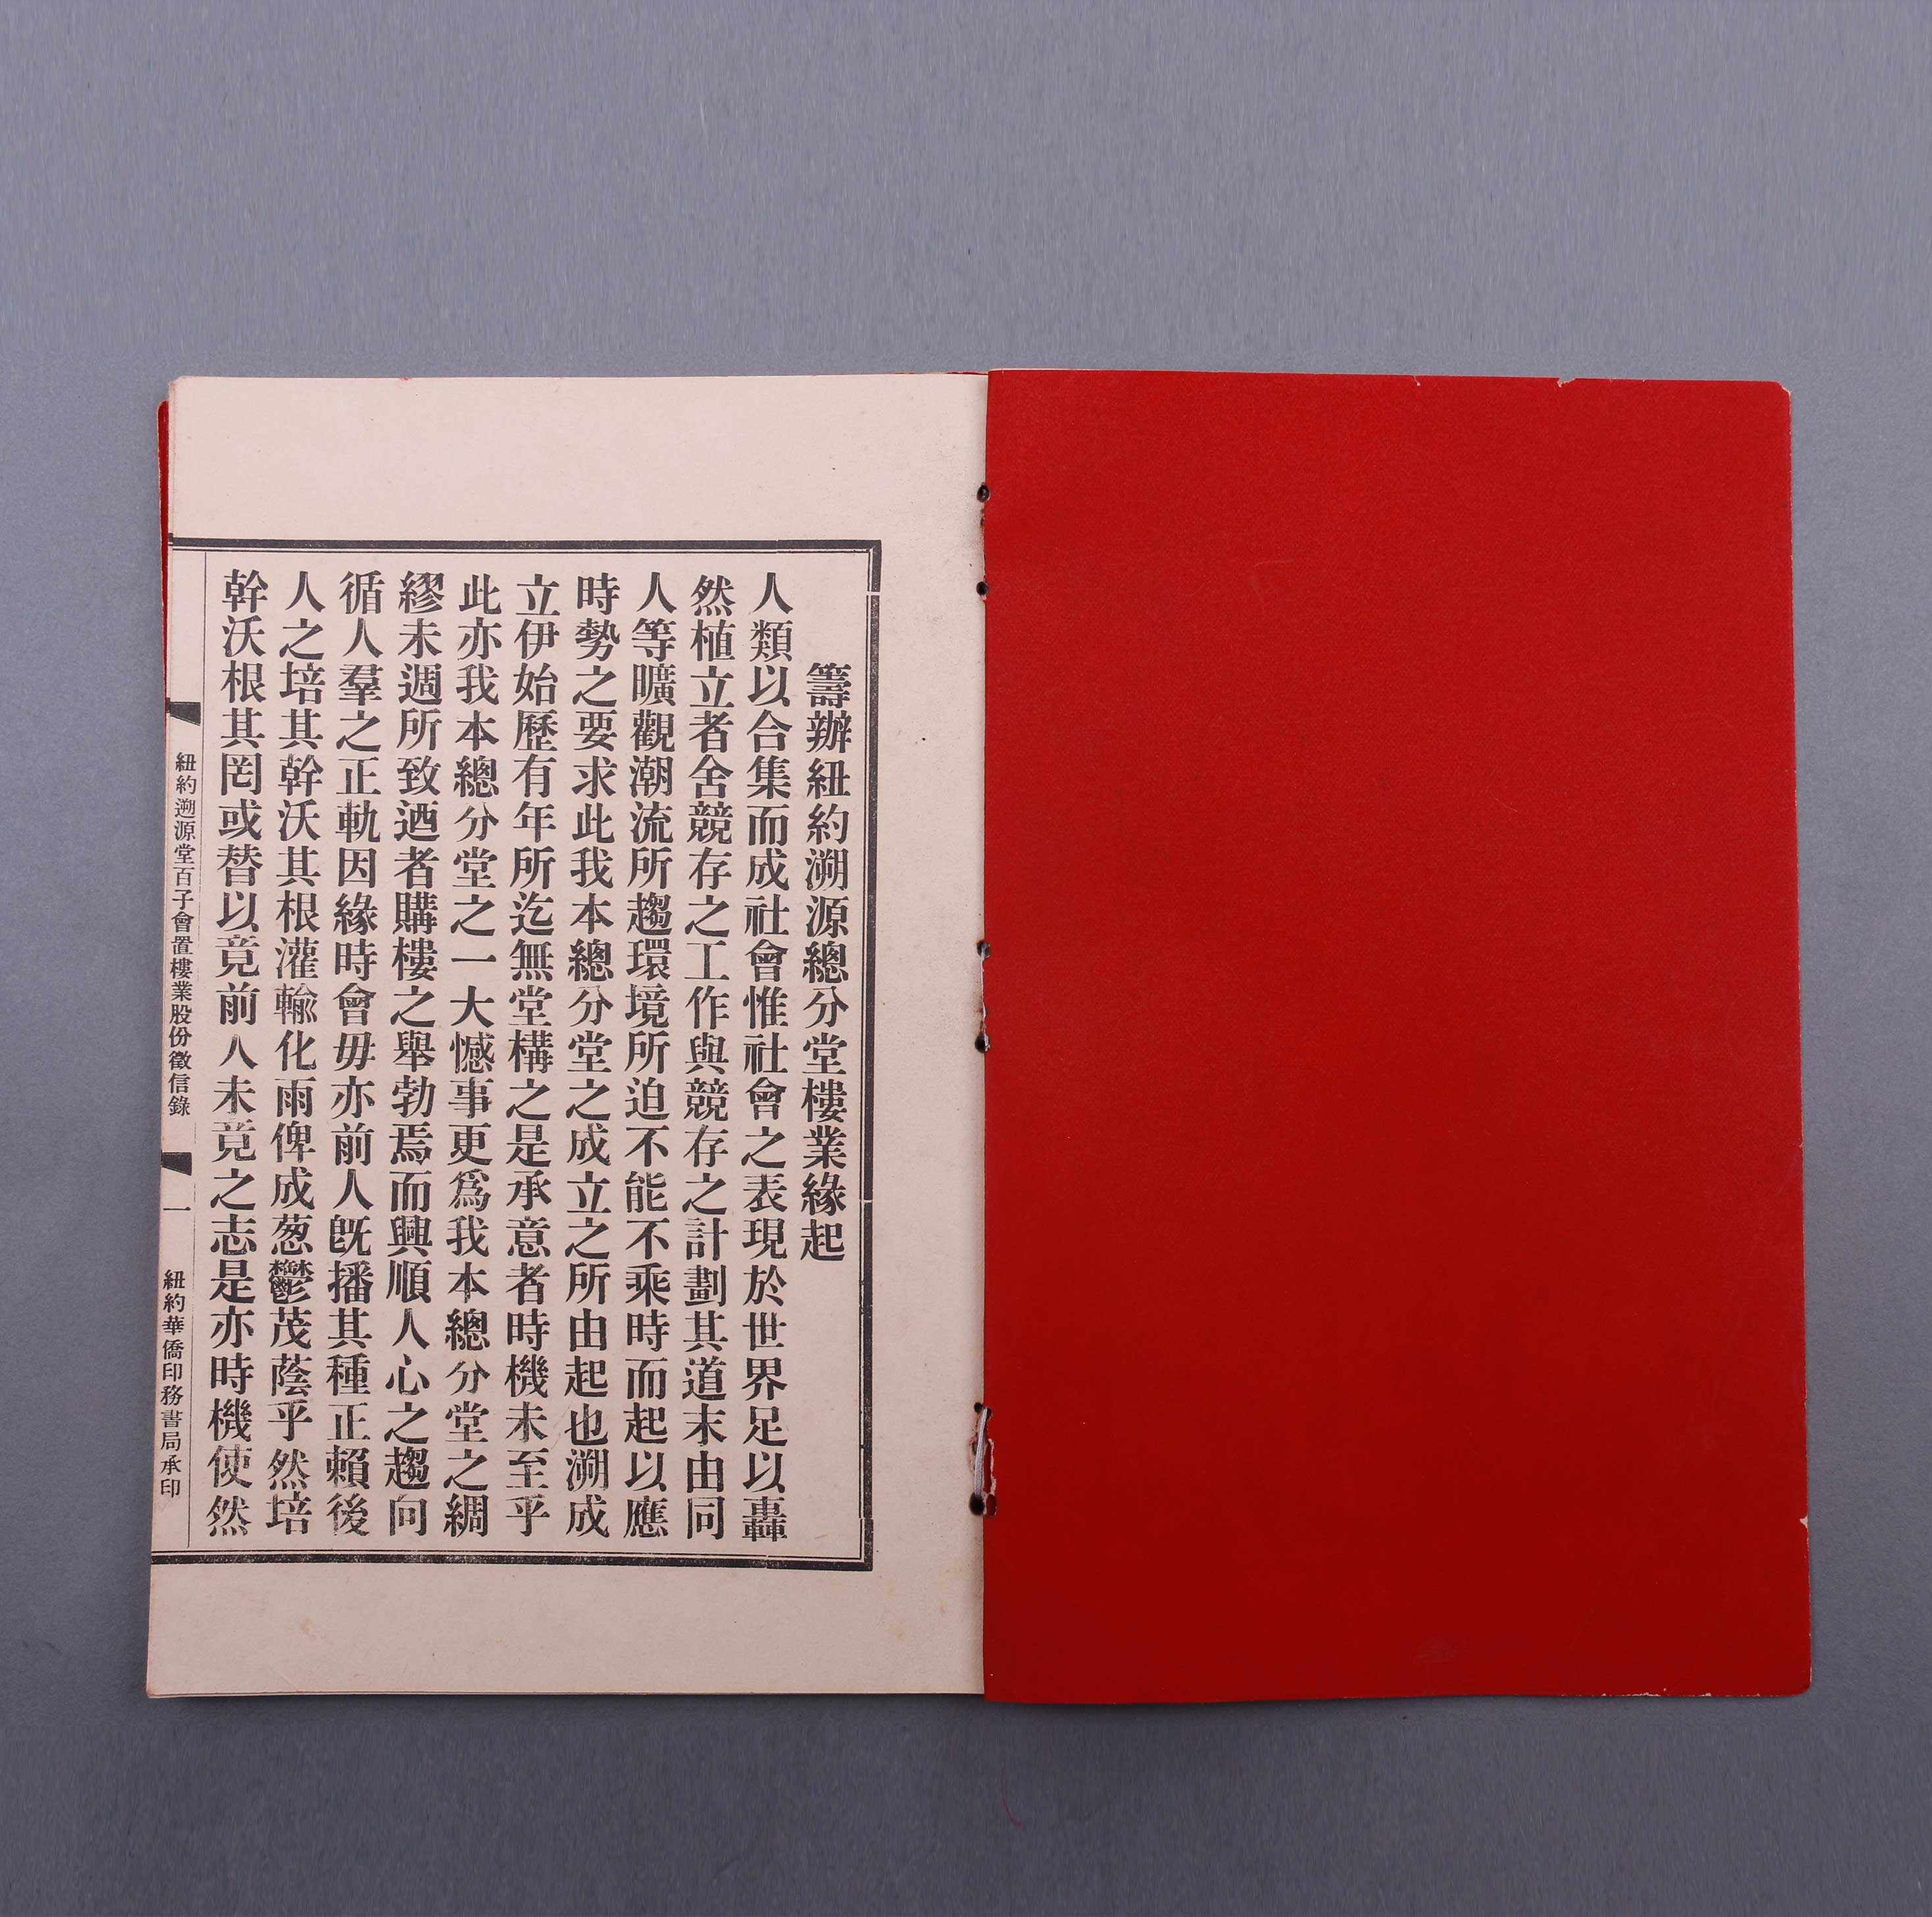 籌辦紐約溯源總分堂樓業緣起
人類以合集而成社會惟社會之表現於世界足以轟
然植立者舍競存之工作與競存之計劃其道末由同
人等曠觀潮流所趨環境所迫不能不乘時而起以應
時勢之要求此我本總分堂之成立之所由起也溯成
立伊始歷有年所迄無堂構之是承意者時機未至乎
此亦我本總分堂之一大憾事更爲我本總分堂之綢
繆未週所致迺者購樓之舉勃焉而興順人心之趨向
循人羣之正軌因緣時會毋亦前人旣播其種正賴後
人之培其幹沃其根灌輸化雨俾成葱鬱茂蔭乎然培
幹沃根其罔或替以竟前人未竟之志是亦時機使然
紐約遡源堂百子會置樓業股份徵信錄
一
紐約華僑印務書局承印